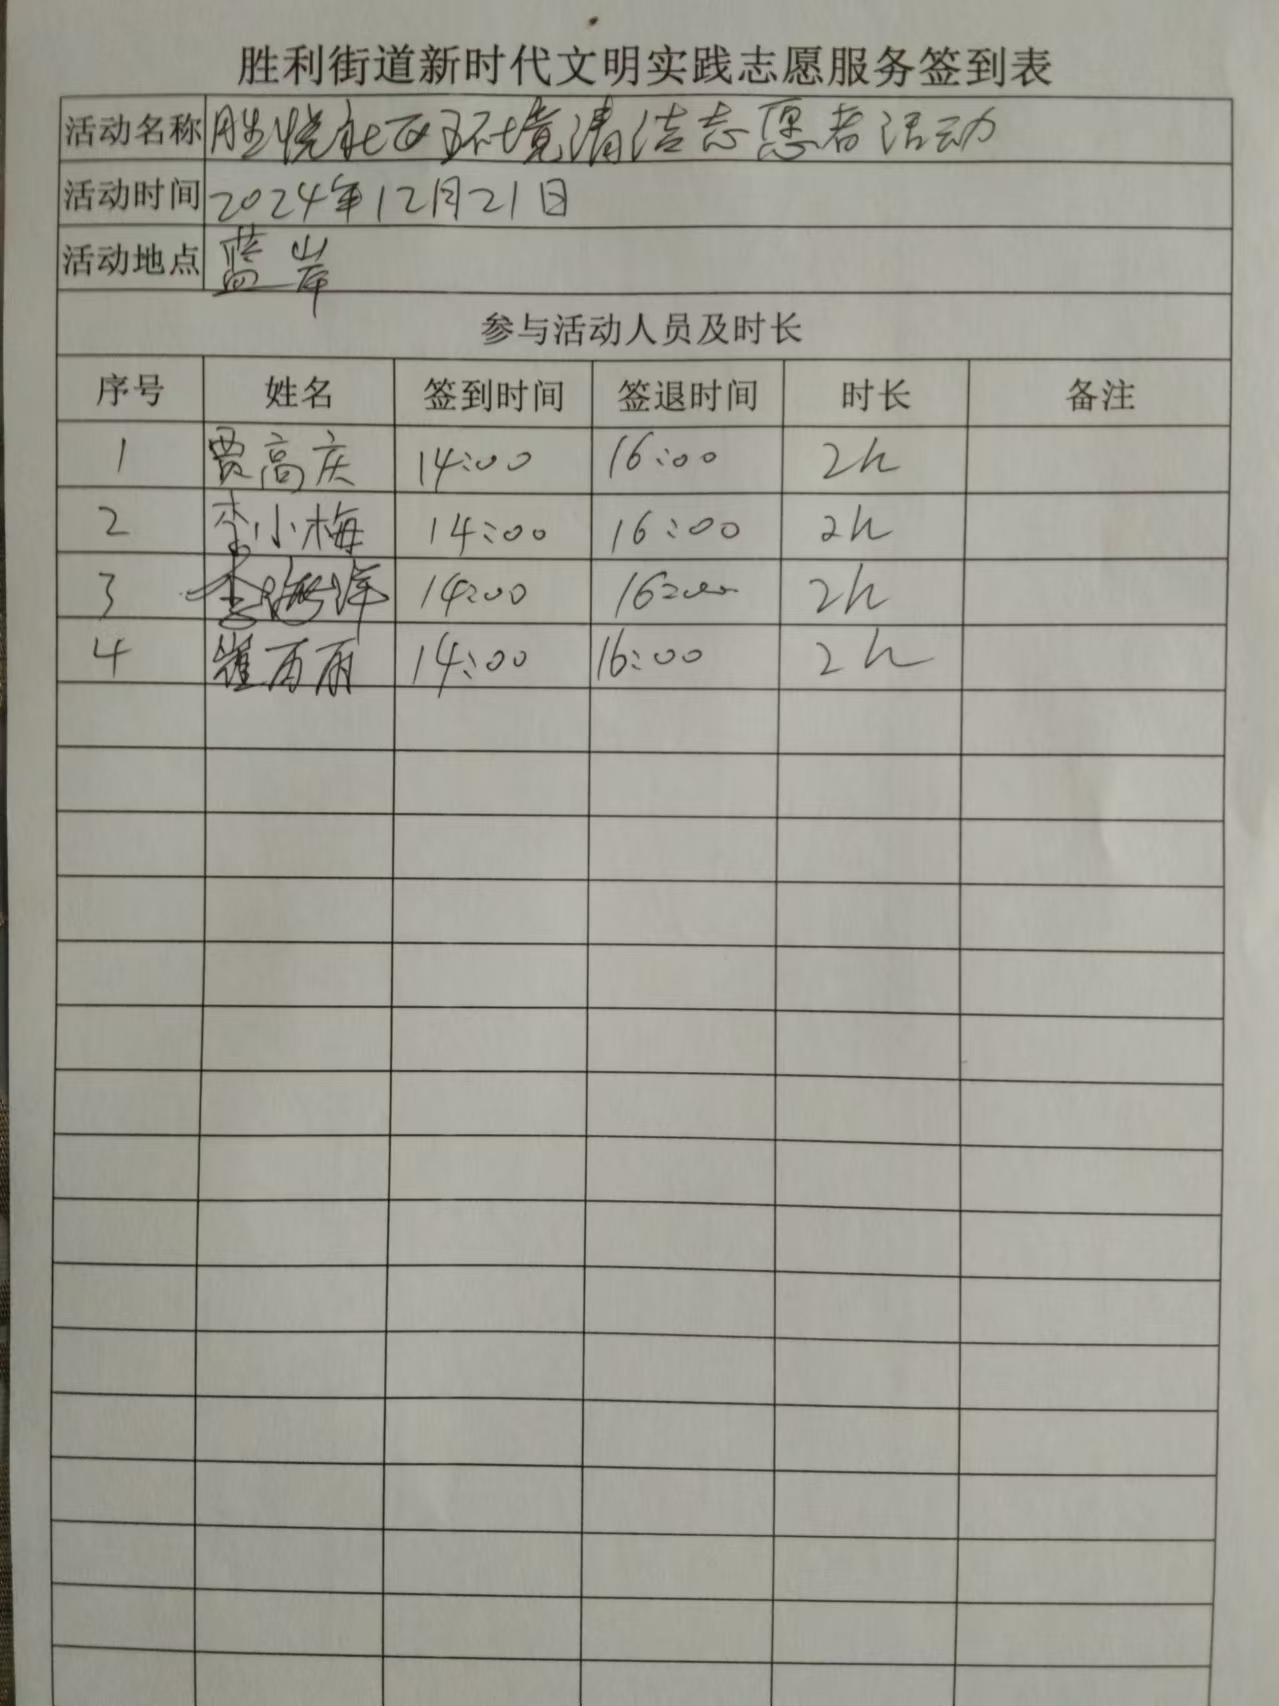 胜利街道新时代文明实践志愿服务签到表
活动名称 胜悦社区环境清洁志愿者活动
活动时间 2024年12月21日
活动地点 蓝岸
参与活动人员及时长
序号 姓名 签到时间 签退时间 时长 备注
1 贾高庆 14:00 16:00 2h
2 李小梅 14:00 16:00 2h
3 李海洋 14:00 16:00 2h
4 崔丽 14:00 16:00 2h